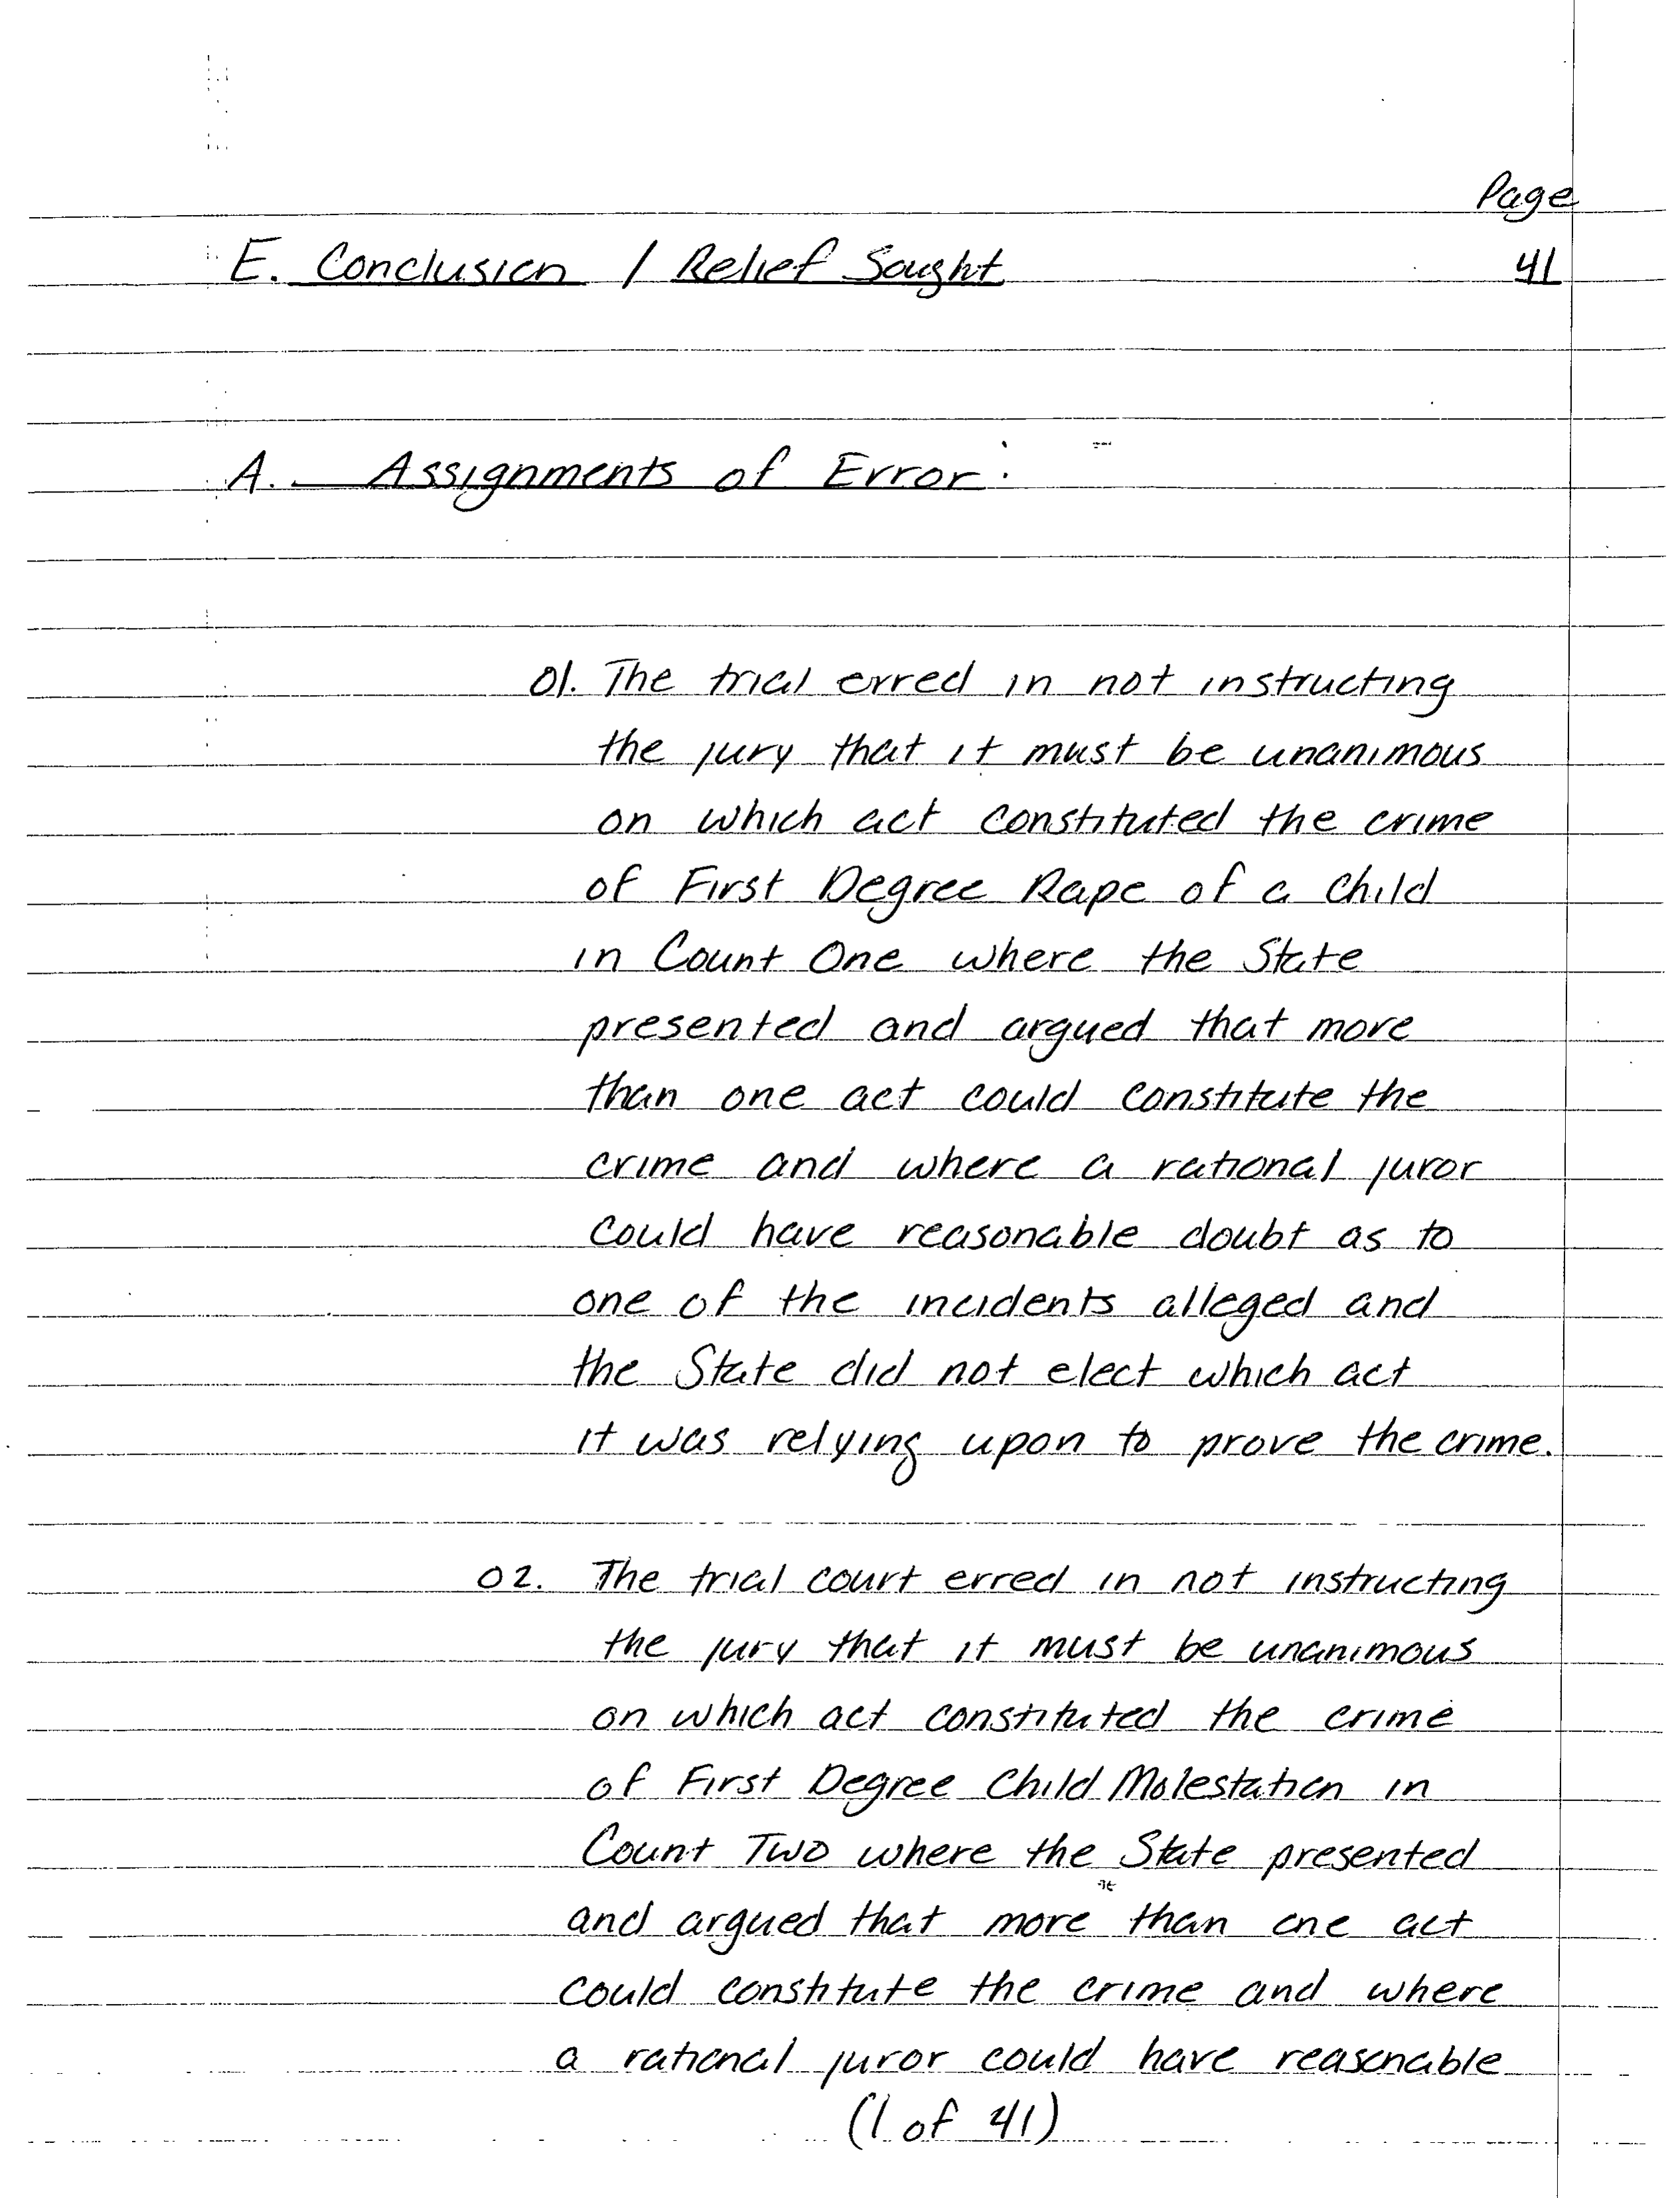 Page
E. Conclusion / Relief Sought 41
A. Assignments of Error:
01. The trial erred in not instructing
the jury that it must be unanimous
on which act constituted the crime
of First Degree Rape of a Child
in Count One where the State
presented and argued that more
than one act could constitute the
crime and where a rational juror
could have reasonable doubt as to
one of the incidents alleged and
the State did not elect which act
it was relying upon to prove the crime.
02. The trial court erred in not instructing
the jury that it must be unanimous
on which act constituted the crime
of First Degree Child Molestation in
Count Two where the State presented
and argued that more than one act
could constitute the crime and where
a rational juror could have reasonable
(1 of 41)